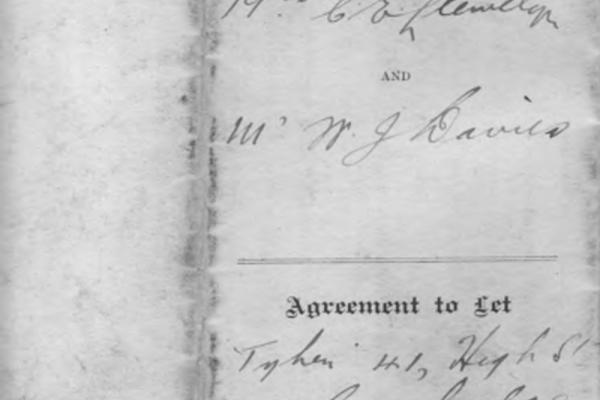 C E Llewellyn
AND
Mr W. J Davies
Agreement to Let
41, High St